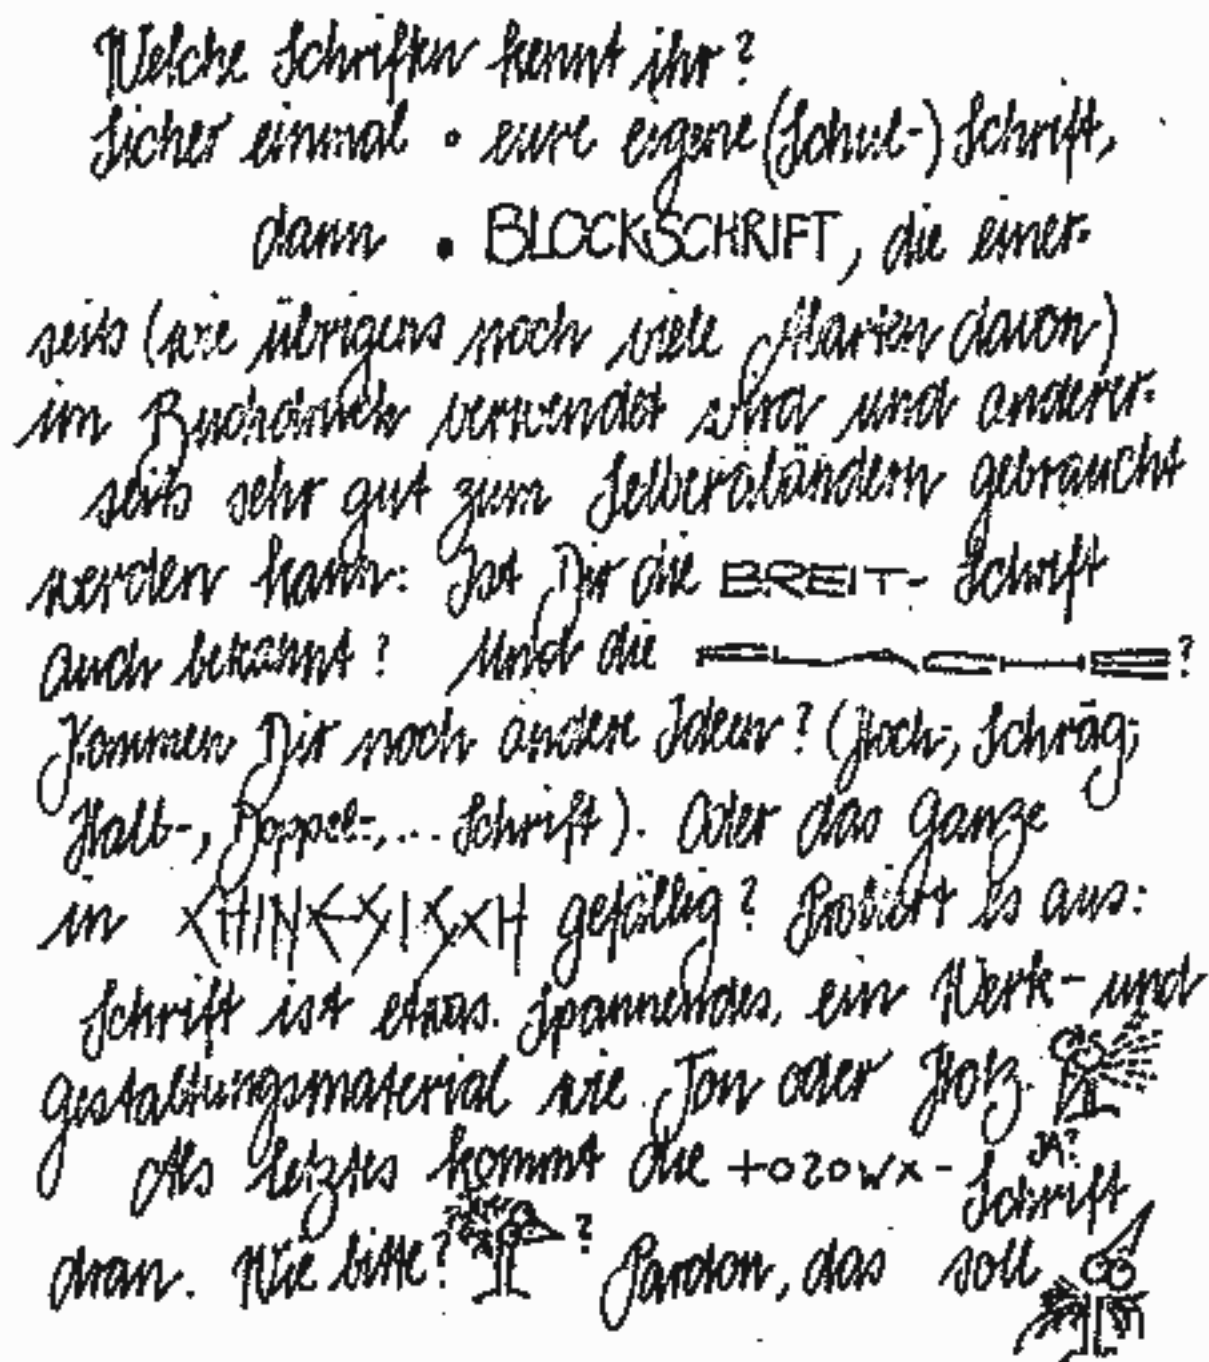 Welche Schriften kennt ihr?
Sicher einmal • eure eigene (Schul-) Schrift,
dann • BLOCKSCHRIFT, die einer-
seits (wie übrigens noch viele Arten davon)
im Buchdruck verwendet wird und anderer-
seits sehr gut zum Selberabändern gebraucht
werden kann: Ist Dir die BREIT- Schrift
auch bekannt? Und die ?
Kommen Dir noch andere Ideen? (Hoch-, Schräg-,
Halb-, Doppel-, ... Schrift). Oder das Ganze
in CHINESISCH gefällig? Probiert es aus:
Schrift ist etwas Spannendes, ein Werk- und
Gestaltungsmaterial wie Ton oder Holz.
JA?
Als letztes kommt die +o2owx- Schrift
dran. Wie bitte? ? Pardon, das soll